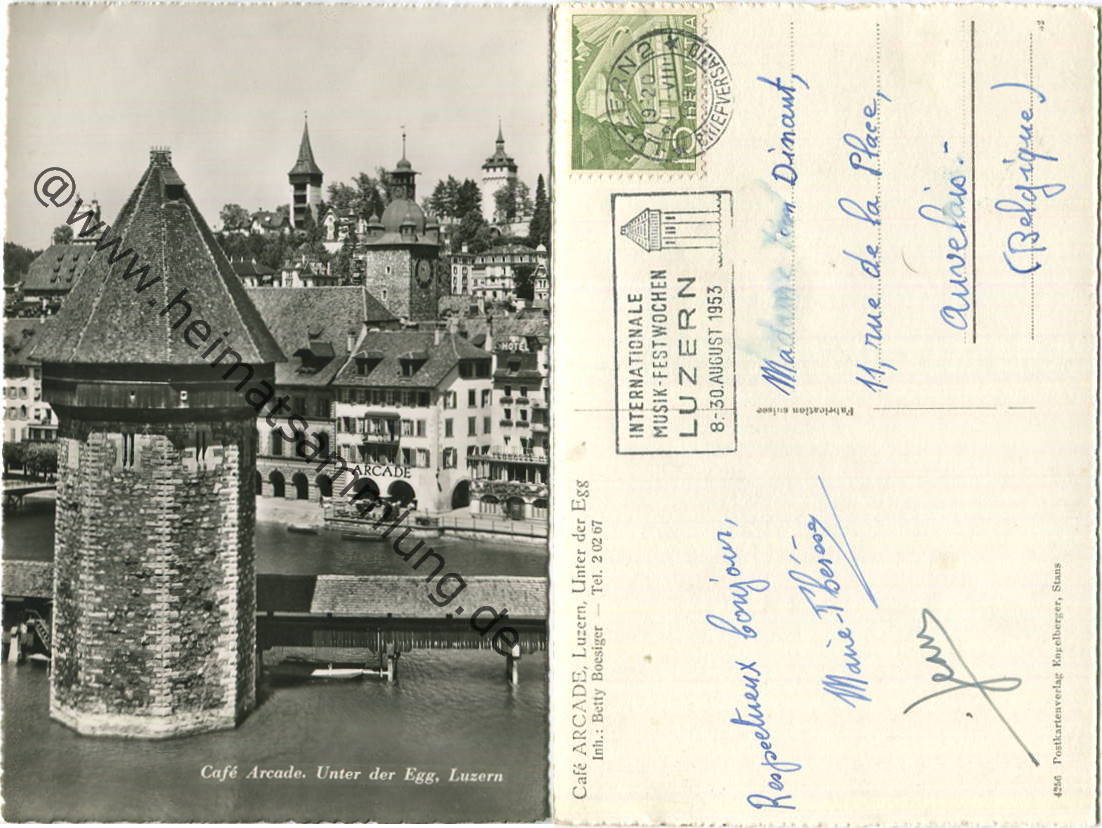 @www.heimatsammlung.de
HOTEL
ARCADE
Café Arcade. Unter der Egg, Luzern
HELVETIA
10
LUZERN 2
19-20
VIII
BRIEFVERSAND
INTERNATIONALE
MUSIK-FESTWOCHEN
LUZERN
8.-30.AUGUST 1953
Madame Dinant,
11, rue de la Place,
Auvelais.-
(Belgique)
Fabrication suisse
Café ARCADE, Luzern, Unter der Egg
Inh.: Betty Boesiger — Tel. 2 02 67
Respectueux bonjour,
Marie-Thérèse
4256 Postkartenverlag Engelberger, Stans